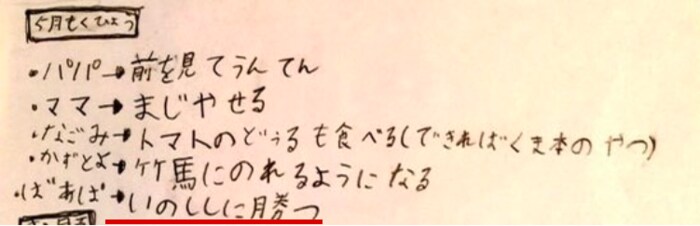 5月もくひょう
・パパ→前を見てうんてん
・ママ→まじやせる
・なごみ→トマトのどうるも食べる(できればくま本のやつ)
・かずとよ→竹馬にのれるようになる
・ばあば→いのししに勝つ